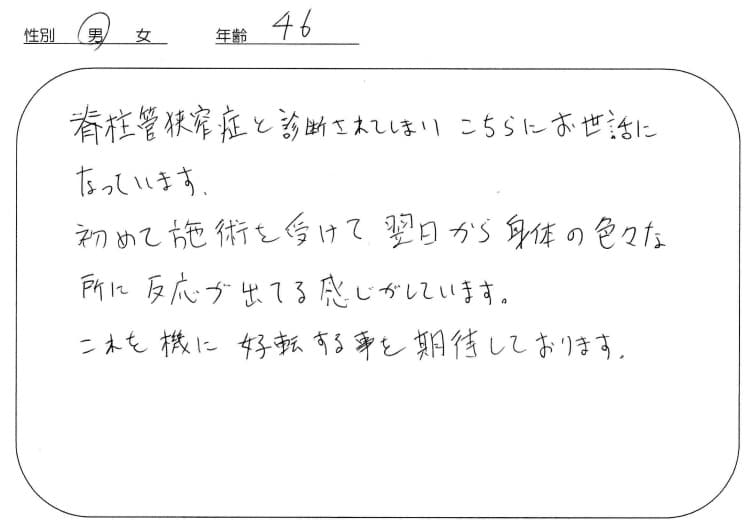 性別 男 女 年齢 46
脊柱管狭窄症と診断されてしまい こちらにお世話に
なっています.
初めて施術を受けて 翌日から身体の色々な
所に反応が出てる感じがしています。
これを機に 好転する事を期待しております.